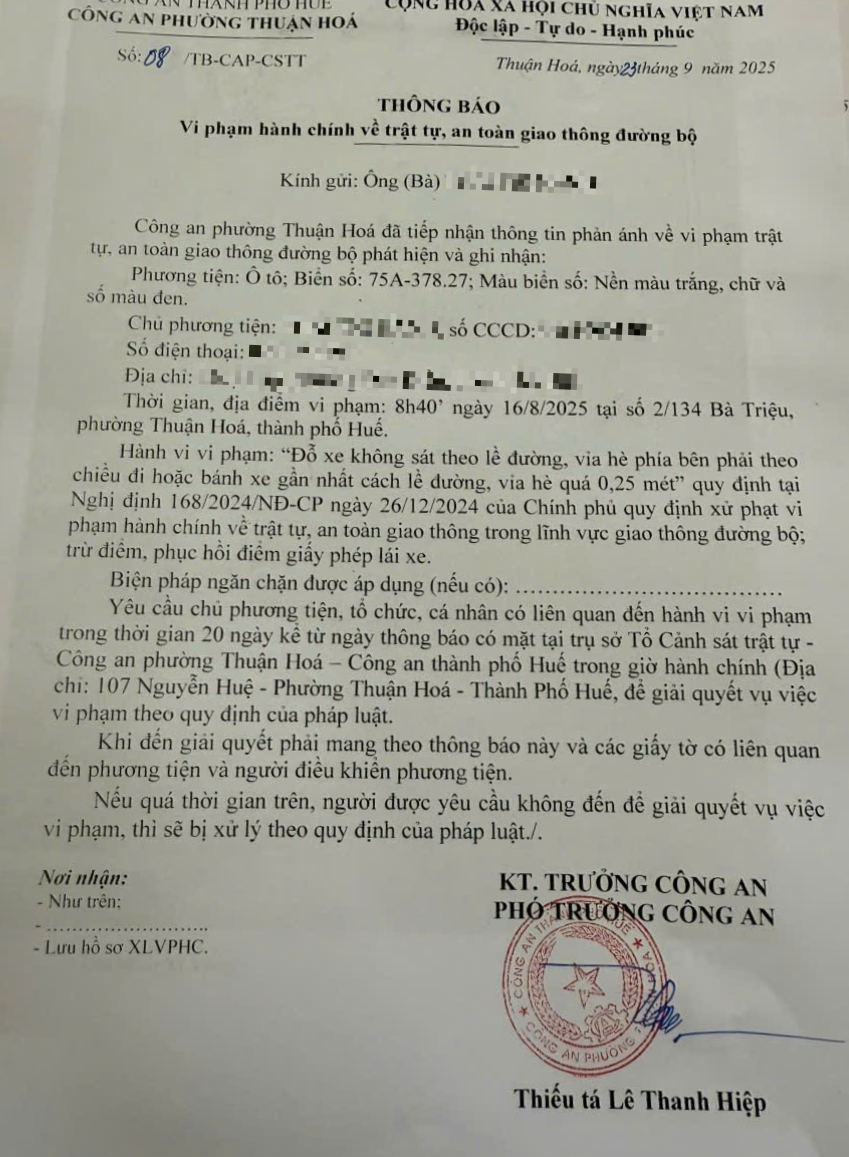 CÔNG AN THÀNH PHỐ HUẾ
CÔNG AN PHƯỜNG THUẬN HOÁ
CỘNG HOÀ XÃ HỘI CHỦ NGHĨA VIỆT NAM
Độc lập - Tự do - Hạnh phúc
Số: 08 /TB-CAP-CSTT
Thuận Hoá, ngày 23 tháng 9 năm 2025
THÔNG BÁO
Vi phạm hành chính về trật tự, an toàn giao thông đường bộ
Kính gửi: Ông (Bà)
Công an phường Thuận Hoá đã tiếp nhận thông tin phản ánh về vi phạm trật
tự, an toàn giao thông đường bộ phát hiện và ghi nhận:
Phương tiện: Ô tô; Biển số: 75A-378.27; Màu biển số: Nền màu trắng, chữ và
số màu đen.
Chủ phương tiện: , số CCCD:
Số điện thoại:
Địa chỉ:
Thời gian, địa điểm vi phạm: 8h40’ ngày 16/8/2025 tại số 2/134 Bà Triệu,
phường Thuận Hoá, thành phố Huế.
Hành vi vi phạm: “Đỗ xe không sát theo lề đường, vỉa hè phía bên phải theo
chiều đi hoặc bánh xe gần nhất cách lề đường, vỉa hè quá 0,25 mét” quy định tại
Nghị định 168/2024/NĐ-CP ngày 26/12/2024 của Chính phủ quy định xử phạt vi
phạm hành chính về trật tự, an toàn giao thông trong lĩnh vực giao thông đường bộ;
trừ điểm, phục hồi điểm giấy phép lái xe.
Biện pháp ngăn chặn được áp dụng (nếu có): ......................................
Yêu cầu chủ phương tiện, tổ chức, cá nhân có liên quan đến hành vi vi phạm
trong thời gian 20 ngày kể từ ngày thông báo có mặt tại trụ sở Tổ Cảnh sát trật tự -
Công an phường Thuận Hoá – Công an thành phố Huế trong giờ hành chính (Địa
chỉ: 107 Nguyễn Huệ - Phường Thuận Hoá - Thành Phố Huế, để giải quyết vụ việc
vi phạm theo quy định của pháp luật.
Khi đến giải quyết phải mang theo thông báo này và các giấy tờ có liên quan
đến phương tiện và người điều khiển phương tiện.
Nếu quá thời gian trên, người được yêu cầu không đến để giải quyết vụ việc
vi phạm, thì sẽ bị xử lý theo quy định của pháp luật./.
Nơi nhận:
- Như trên;
- ............................
- Lưu hồ sơ XLVPHC.
KT. TRƯỞNG CÔNG AN
PHÓ TRƯỞNG CÔNG AN
CÔNG AN THÀNH PHỐ HUẾ
CÔNG AN PHƯỜNG
Thiếu tá Lê Thanh Hiệp